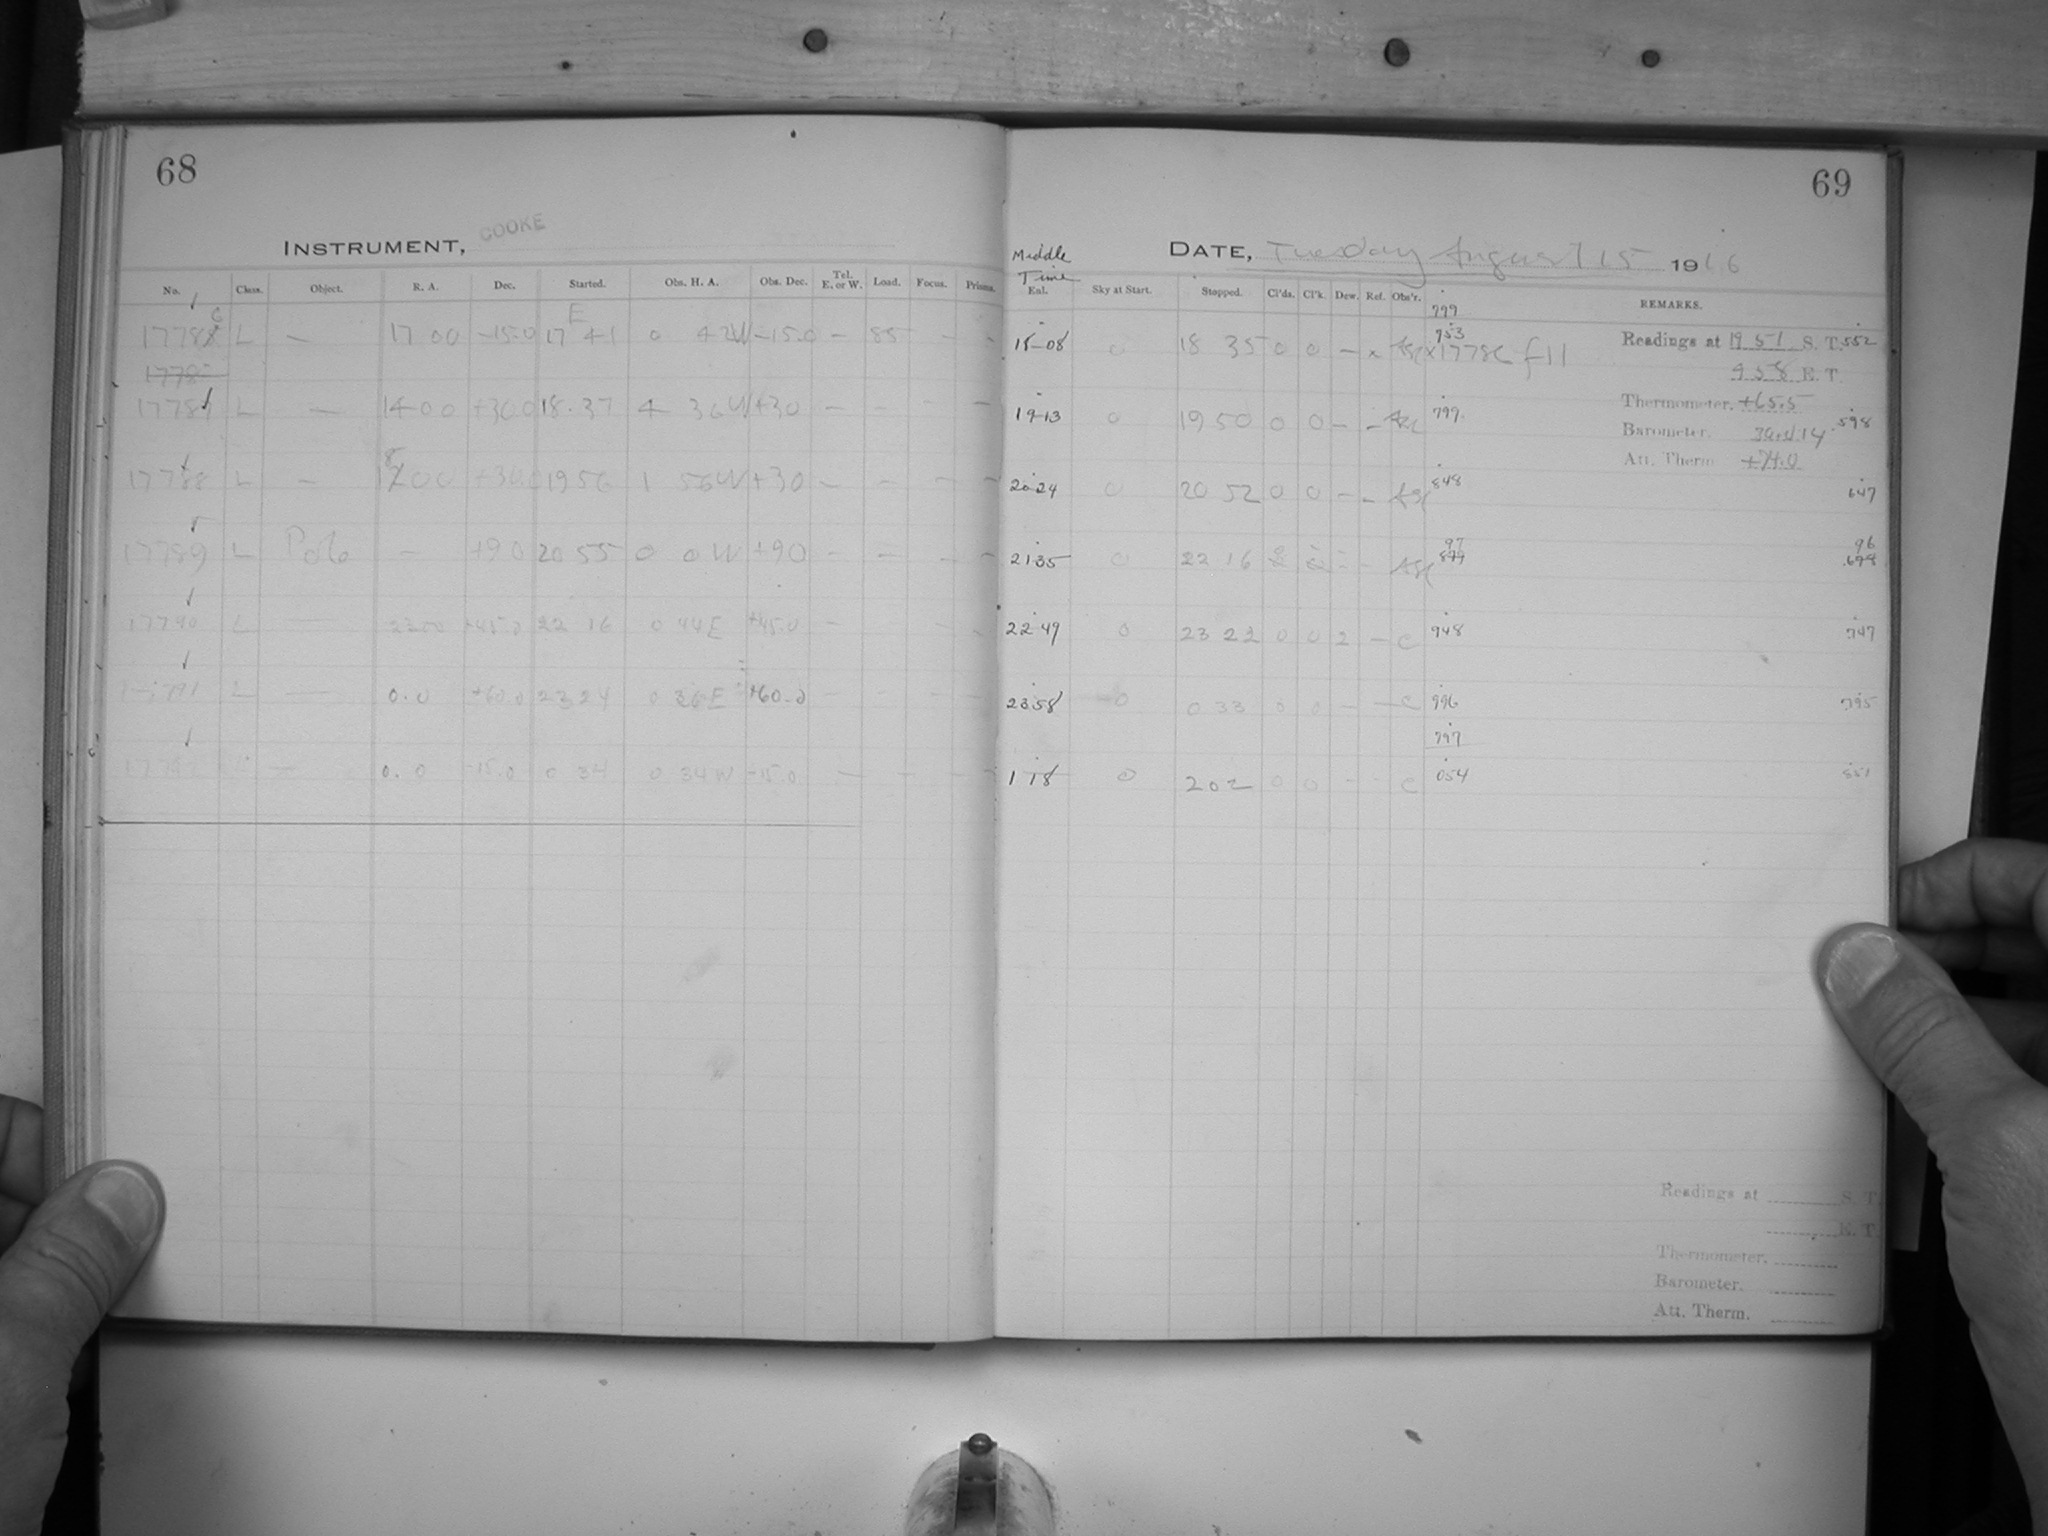 68
INSTRUMENT, COOKE
No. Class. Object. R. A. Dec. Started. Obs. H. A. Obs. Dec. Tel. E. or W. Load. Focus. Prisms.
L — 17 00 -15.0 17 41 0 42W -15.0 — 85
L — 14 00 +30.0 18.37 4 36W +30 — - - -
17788 L — 00 +30.0 19 56 1 56W +30 — - - -
17789 L Pole — +90 20 55 0 0W +90 — — - -
17790 L — 23 00 +45.0 22 16 0 44E +45.0 —
L — 0.0 +60.0 23 24 0 36E +60.0
L — 0.0 -15.0 0 34 0 34W -15.0 —
69
Middle Time
DATE, Tuesday August 15 1916
Eal. Sky at Start. Stopped. Cl'ds. Cl'k. Dew. Ref. Obs'r. REMARKS.
799
953
18-08 0 18 35 0 0 — x x17786 f11
Readings at 19 51 S. T. 552
958 E. T.
Thermometer. +65.5
19-13 0 19 50 0 0 — - 799
Barometer. 598
Att. Therm +74.0
20-24 0 20 52 0 0 — - 848 647
97 96
21-35 0 22 16
22-49 0 23 22 0 0 2 — C 948 747
23-58 0 0 33 0 0 — — C 996 795
797
1 18 0 2 02 0 0 - - C 054 851
Readings at S. T.
E. T.
Thermometer.
Barometer.
Att. Therm.